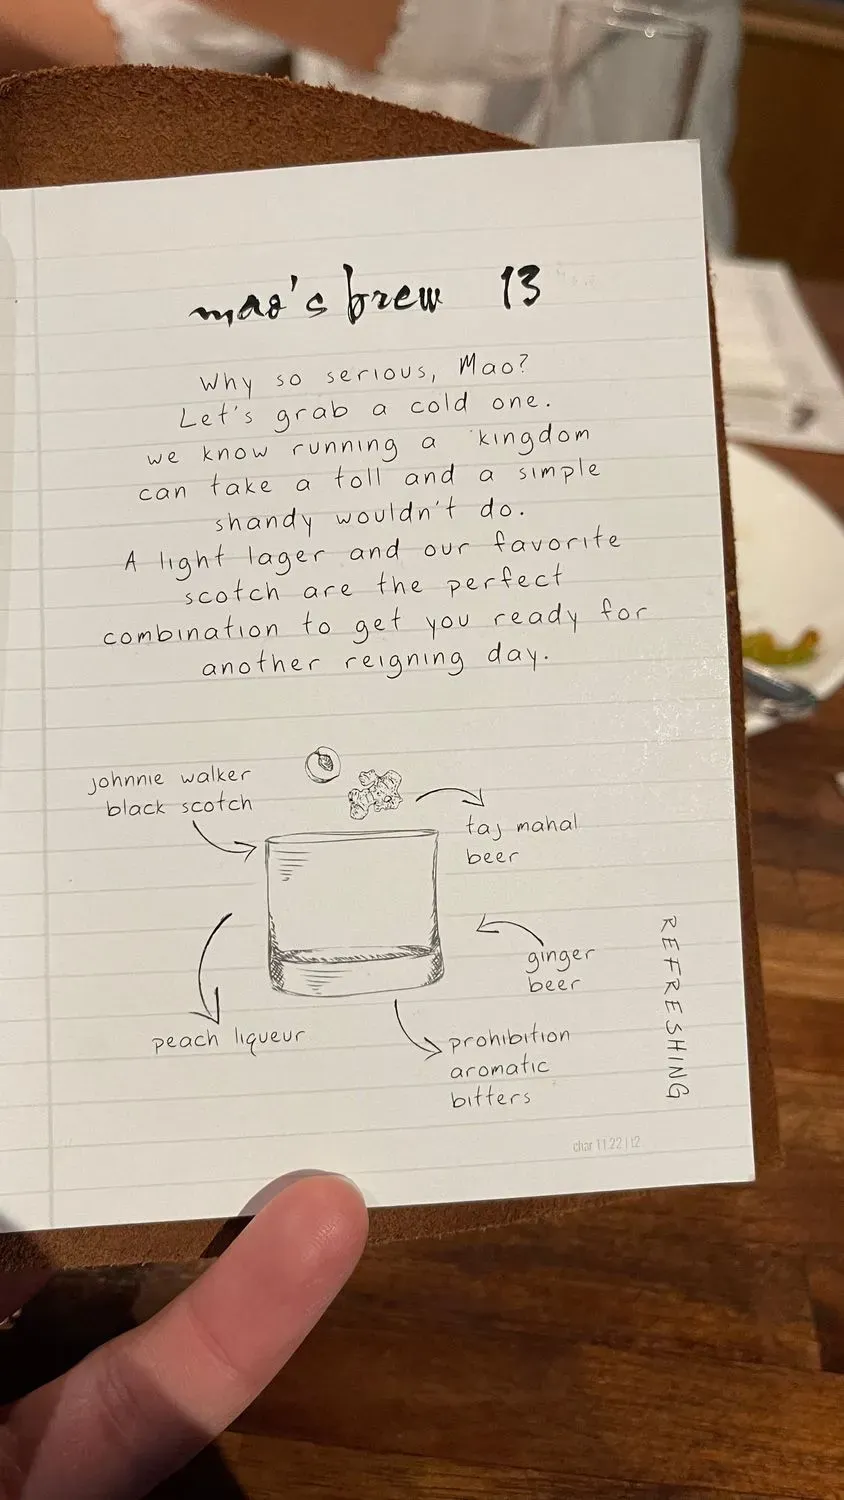 mao's brew 13
Why so serious, Mao?
Let's grab a cold one.
we know running a kingdom
can take a toll and a simple
shandy wouldn't do.
A light lager and our favorite
scotch are the perfect
combination to get you ready for
another reigning day.
johnnie walker
black scotch
taj mahal
beer
ginger
beer
peach liqueur
prohibition
aromatic
bitters
REFRESHING
char 11.22 | 12